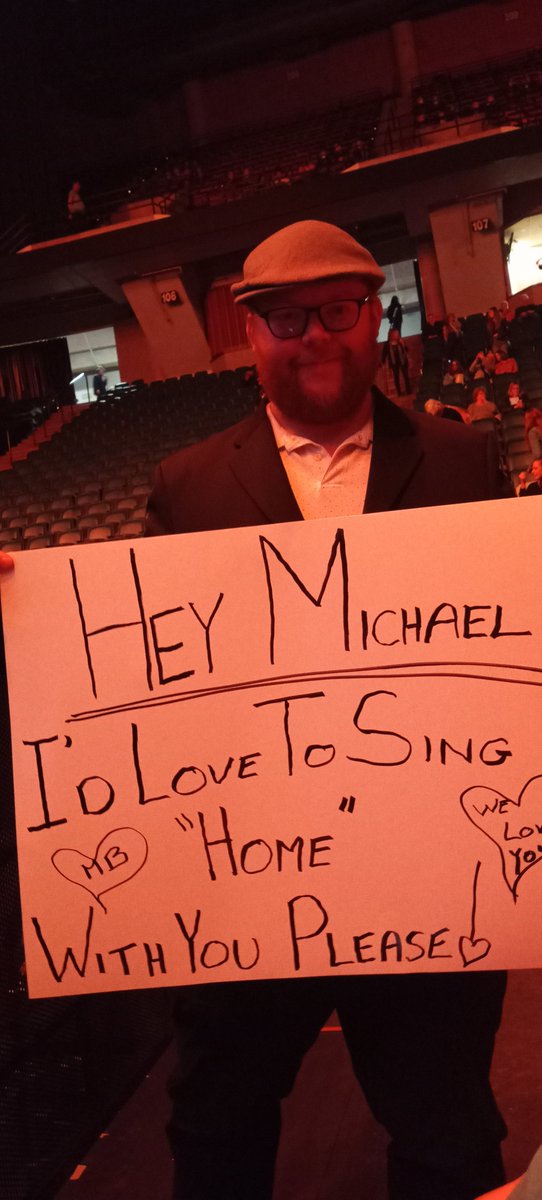 108
107
HEY MICHAEL
I'D LOVE TO SING
"HOME"
MB
WE
LOVE
YOU
WITH YOU PLEASE!